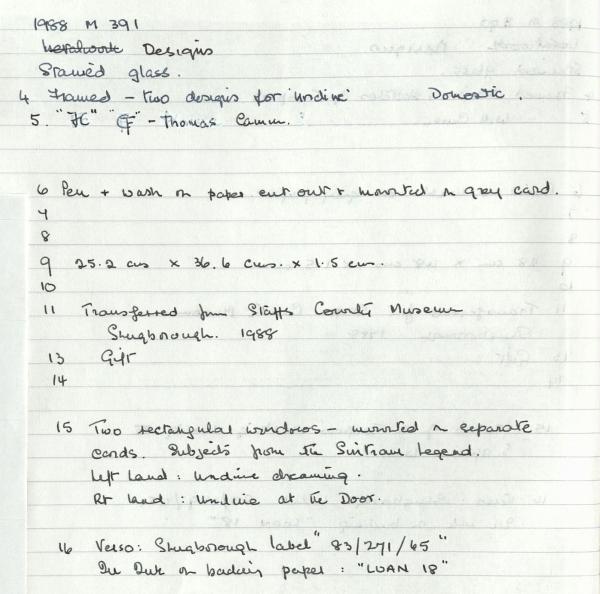 1988 M 391
Designs
Stained glass.
4 Framed - two designs for 'Undine' Domestic.
5. "JC" "CF" - Thomas Camm.
6 Pen + wash on paper cut out + mounted on grey card.
7
8
9 25.2 cms x 36.6 cms. x 1.5 cm.
10
11 Transferred from Staffs County Museum
Shugborough. 1988
13 Gift
14
15 Two rectangular windows - mounted on separate
cards. Subjects from the Sintram Legend.
Left hand : Undine dreaming.
Rt hand : Undine at the Door.
16 Verso: Shugborough label " 83/271/65 "
In Ink on backing paper : "LOAN 18"